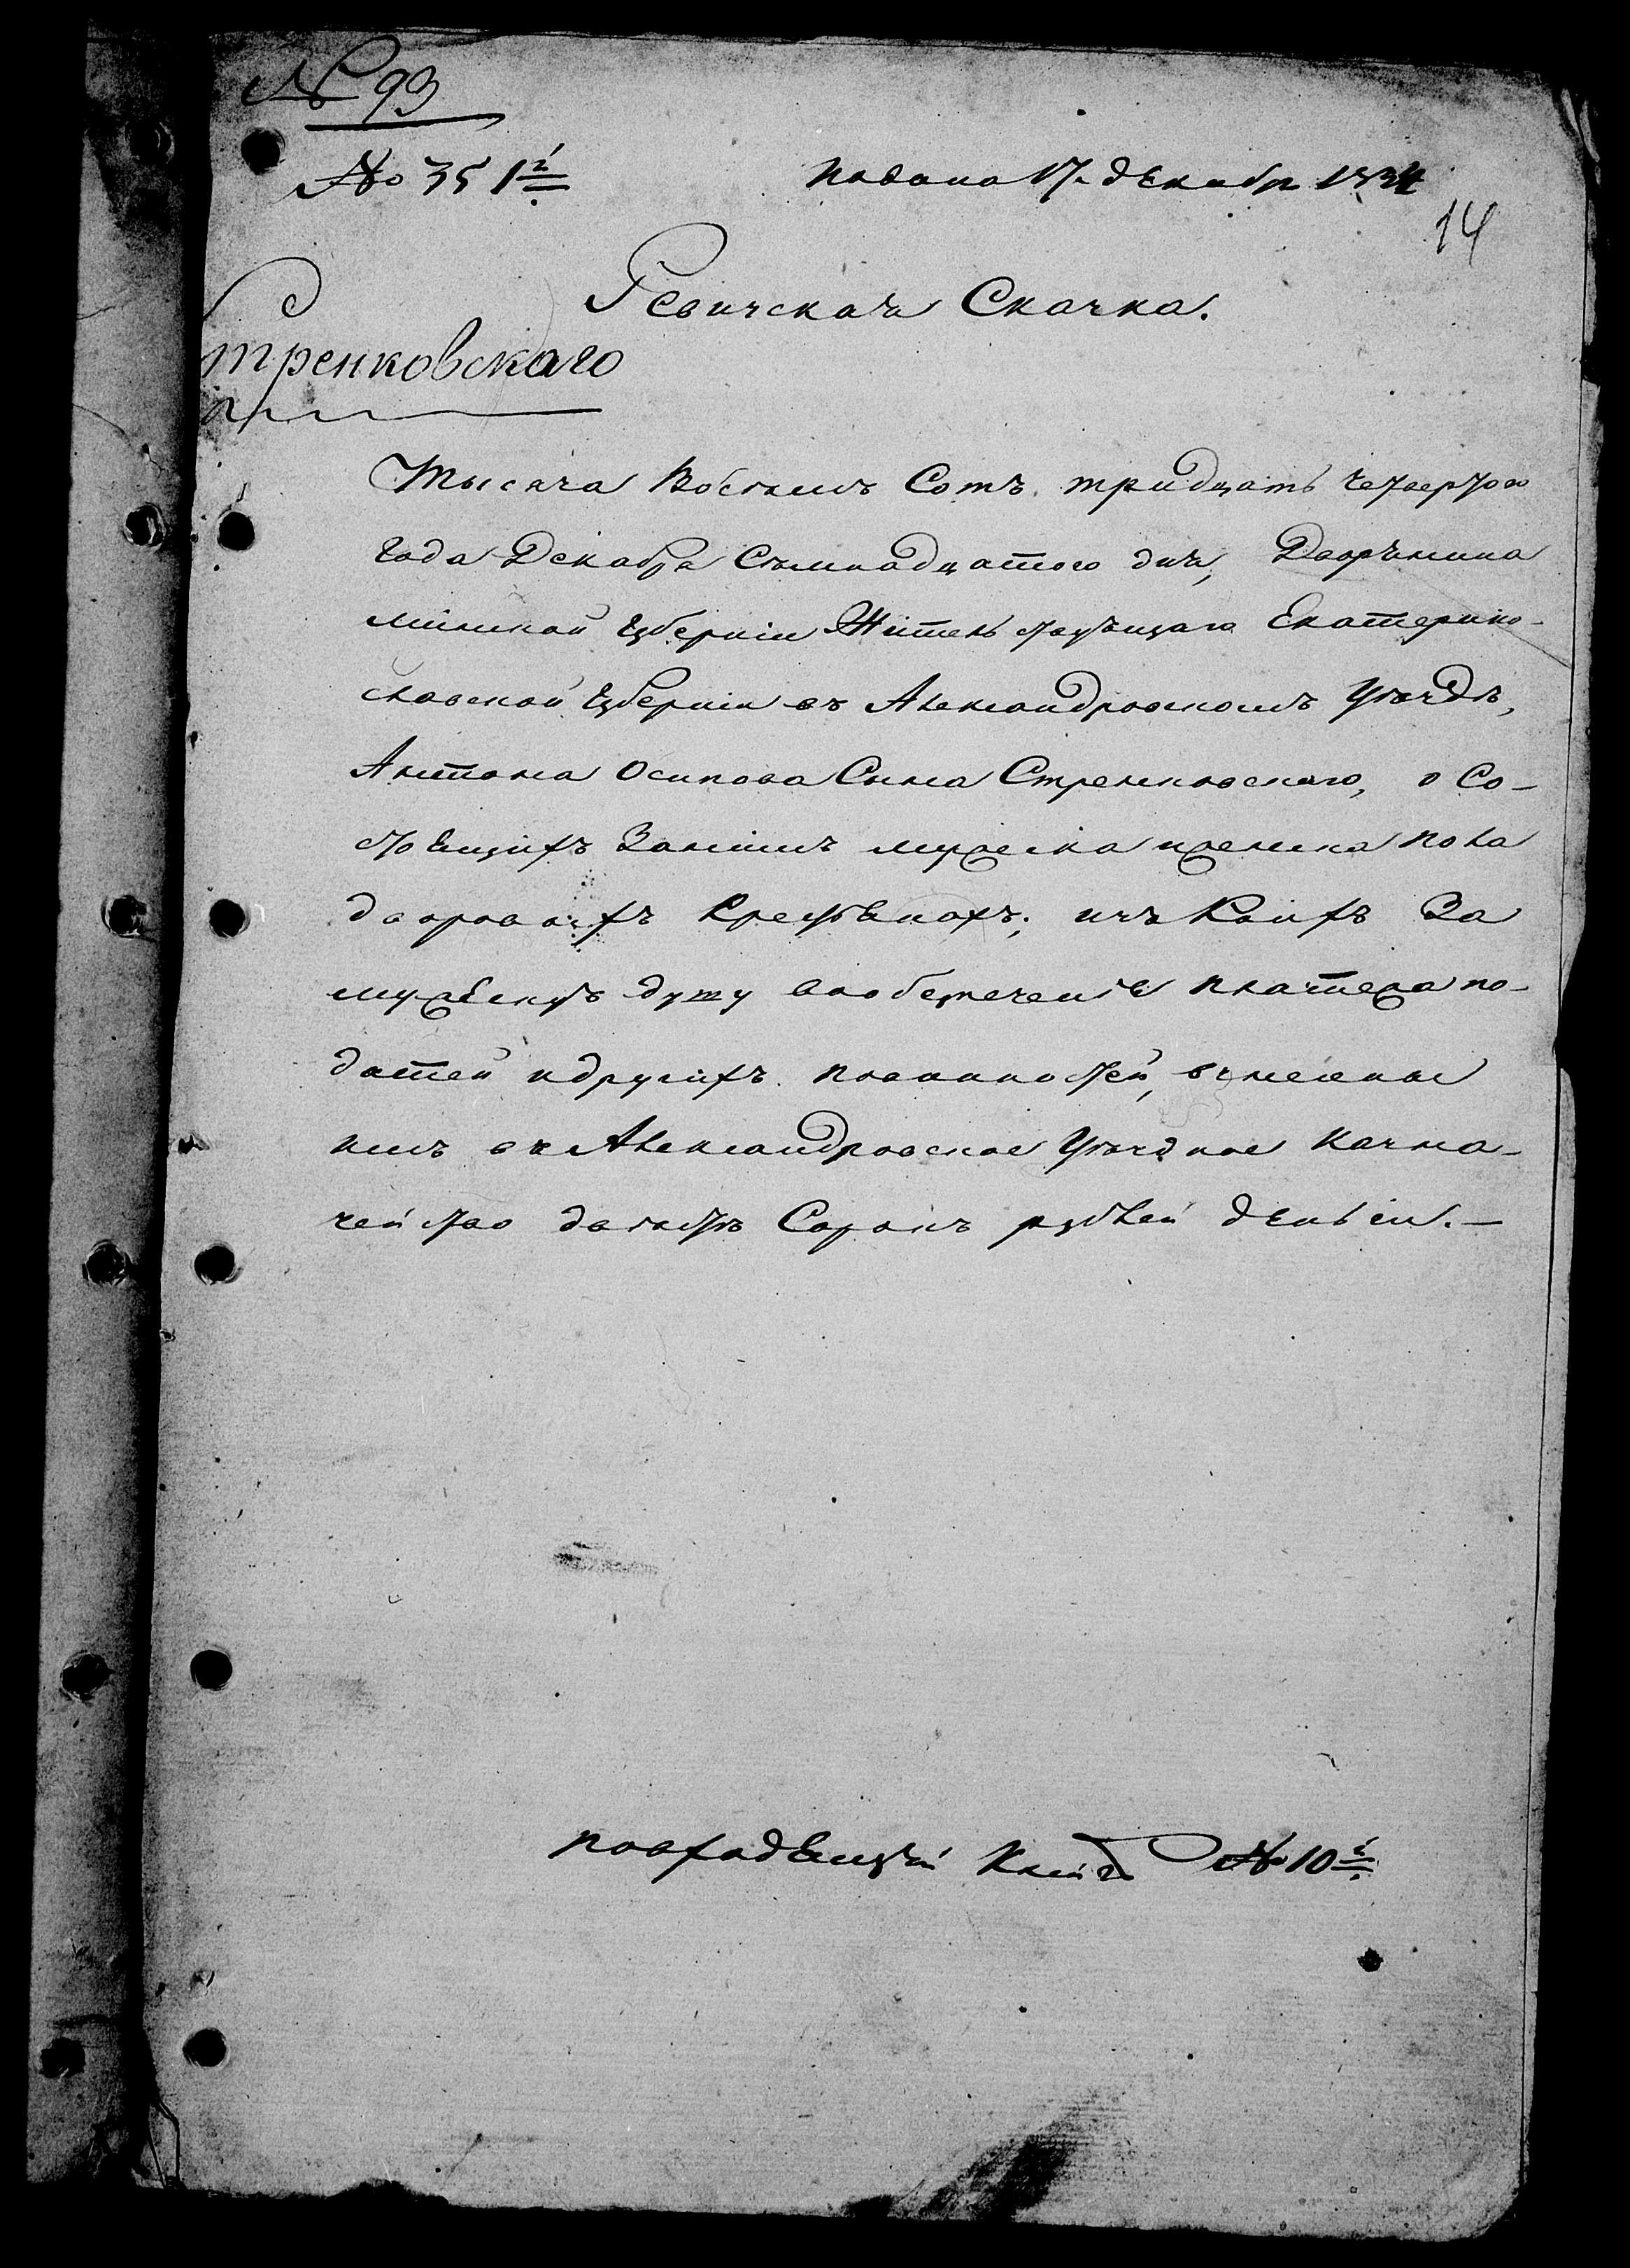 № 93
№ 351й
подана 17 декабр 1834
14
Ревизская Сказка.
Стренковскаго
Тысяча Восемь Сотъ тридцать четвертого
года Декабра Семнадцатого дня, Дворянина
минской губерніи Жительствующаго Екатерино-
славской губерніи въ Александровскомъ Уѣздѣ,
Антона Осипова Сына Стренковскаго, о Со-
стоящихъ Занимъ мужеска и женска пола
дворовыхъ Крестьянахъ; изъ Коихъ За
мужскую душу вообезпеченіе платежа по-
датей идругихъ повинностей, взнесены
имъ въ Александровское Уѣздное Казна-
чейство двѣсти Сорокъ рублей денегъ.—
повходящій Книгѣ № 10й